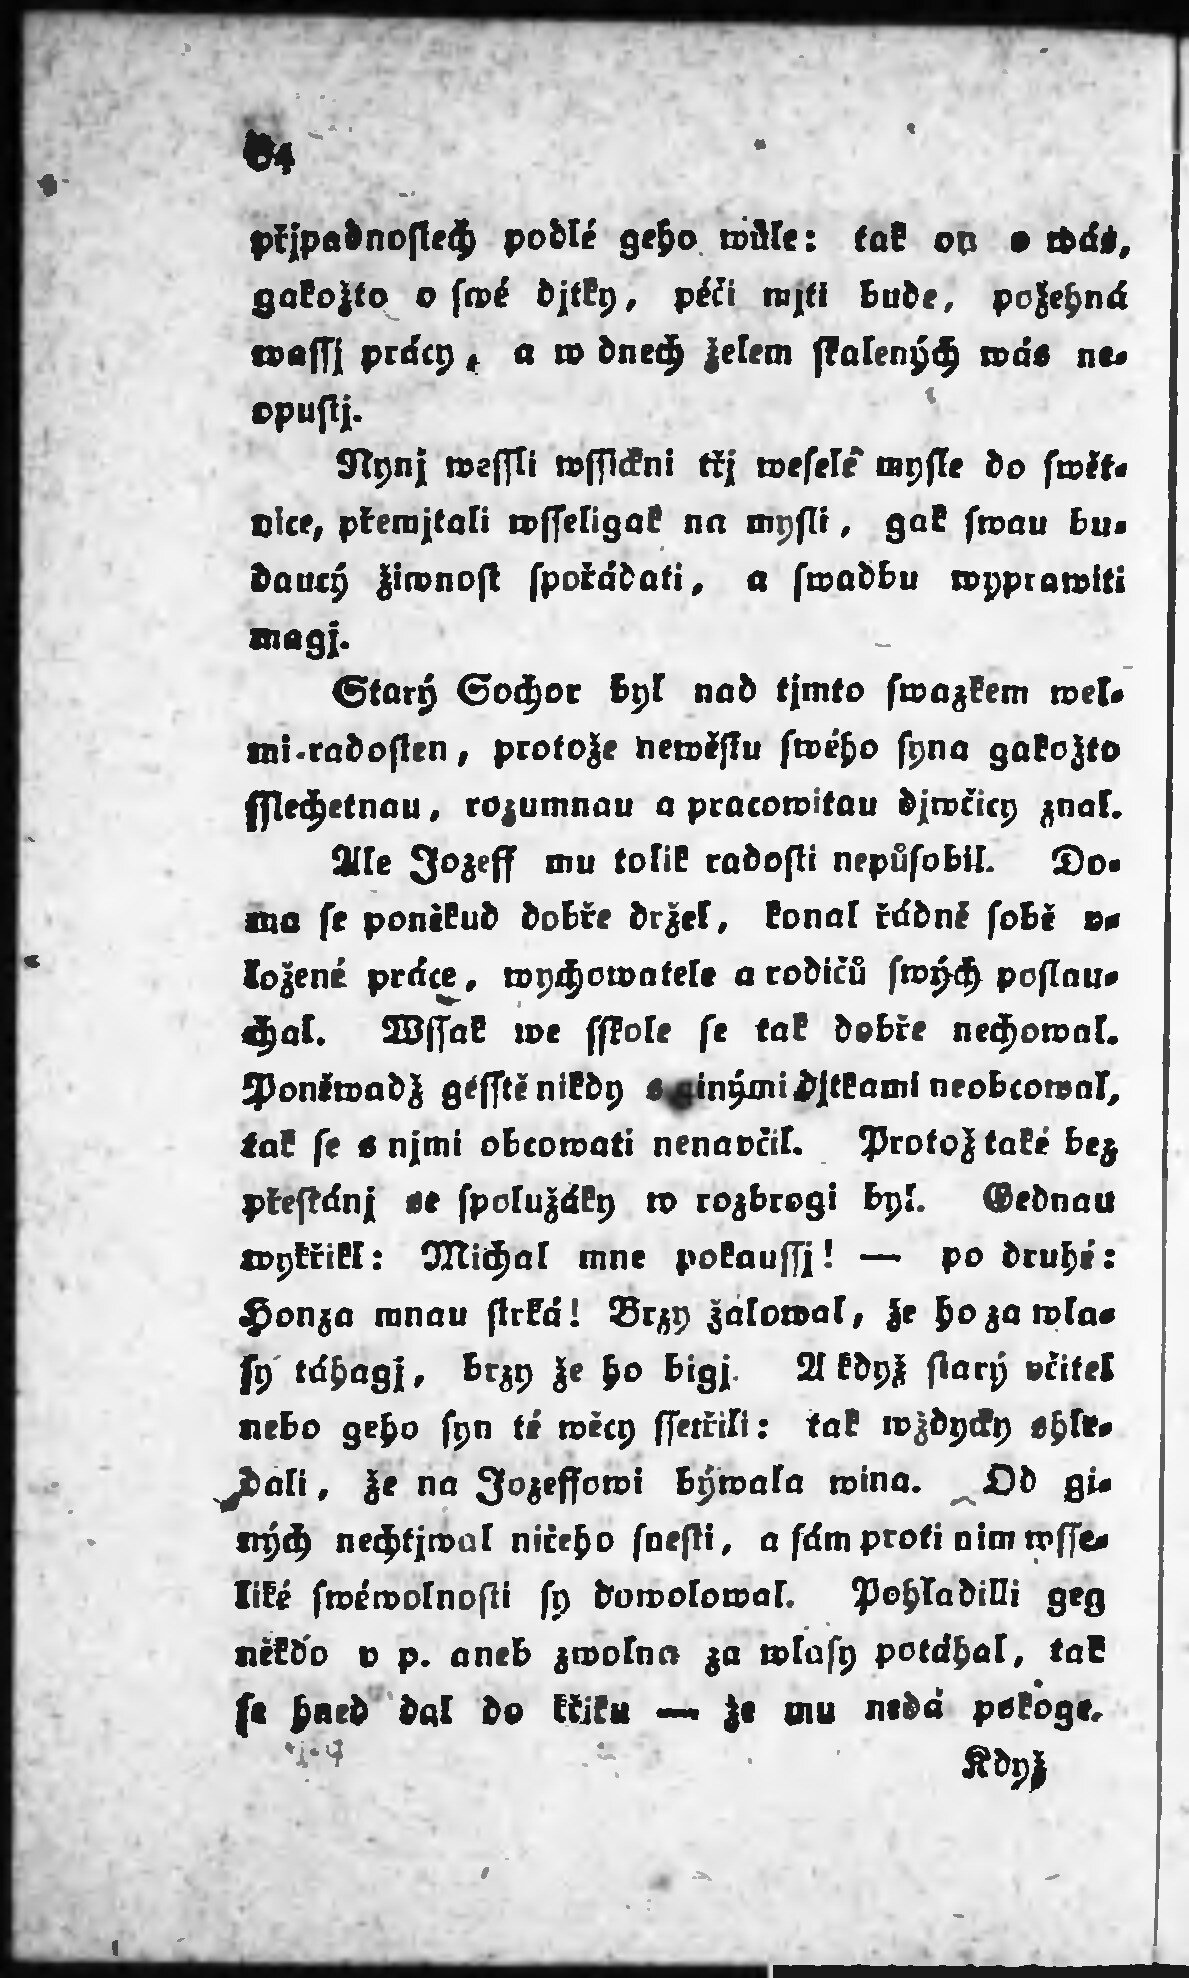 64
přjpadnoſtech podlé geho wůle: tak on o wás,
gakožto o ſwé djtky, péči mjti bude, požehná
waſſj prácy, a w dnech želem ſkalených wás ne-
opuſtj.
Nynj weſſli wſſickni třj weſelé myſle do ſwět-
nice, přemjtali wſſeligak na myſli, gak ſwau bu-
daucý žiwnoſt ſpořádati, a ſwadbu wyprawiti
magj.
Starý Sochor byl nad tjmto ſwazkem wel-
mi radoſten, protože newěſtu ſwého ſyna gakožto
ſſlechetnau, rozumnau a pracowitau djwčicy znal.
Ale Jozeff mu tolik radoſti nepůſobil. Do-
ma ſe poněkud dobře držel, konal řádně ſobě v-
ložené práce, wychowatele a rodičů ſwých poſlau-
chal. Wſſak we ſſkole ſe tak dobře nechowal.
Poněwadž geſſtě nikdy s ginými djtkami neobcowal,
tak ſe s njmi obcowati nenavčil. Protož také bez
přeſtánj se ſpolužáky w rozbrogi byl. Gednau
wykřikl: Michal mne pokauſſj! — po druhé:
Honza mnau ſtrká! Brzy žalowal, že ho za wla-
ſy táhagj, brzy že ho bigj. A když ſtarý včitel
nebo geho ſyn té wěcy ſſetřili: tak wždycky shle-
dali, že na Jozeffowi býwala wina. Od gi-
ných nechtjwal ničeho ſneſti, a ſám proti nim wſſe-
liké ſwéwolnoſti ſy dowolowal. Pohladilli geg
někdo v p. aneb zwolna za wlaſy potáhal, tak
ſe hned dal do křiku — že mu nedá pokoge.
Když